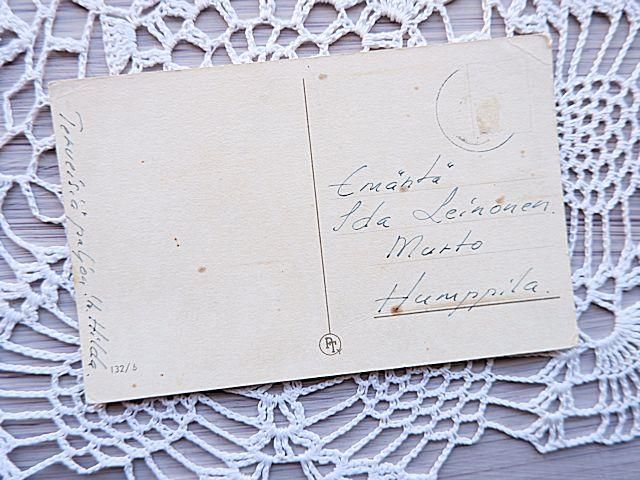 Terveisiä paljon Hilda.
Emäntä
Ida Leinonen.
Murto
Humppila.
PT
132/6